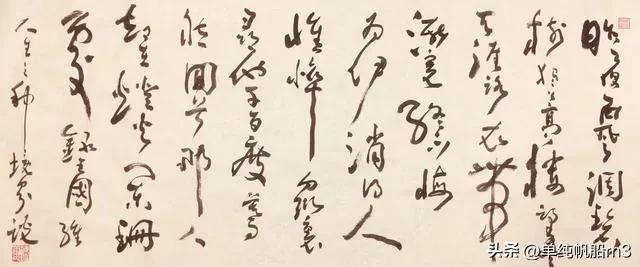 昨夜西風凋碧
樹獨上高樓望盡
天涯路衣帶
漸寬終不悔
為伊消得人
憔悴眾裏
尋他千百度驀
然回首那人
却在燈火闌珊
處 錄王國維
人生三种境界説
头条 @单纯帆船m3